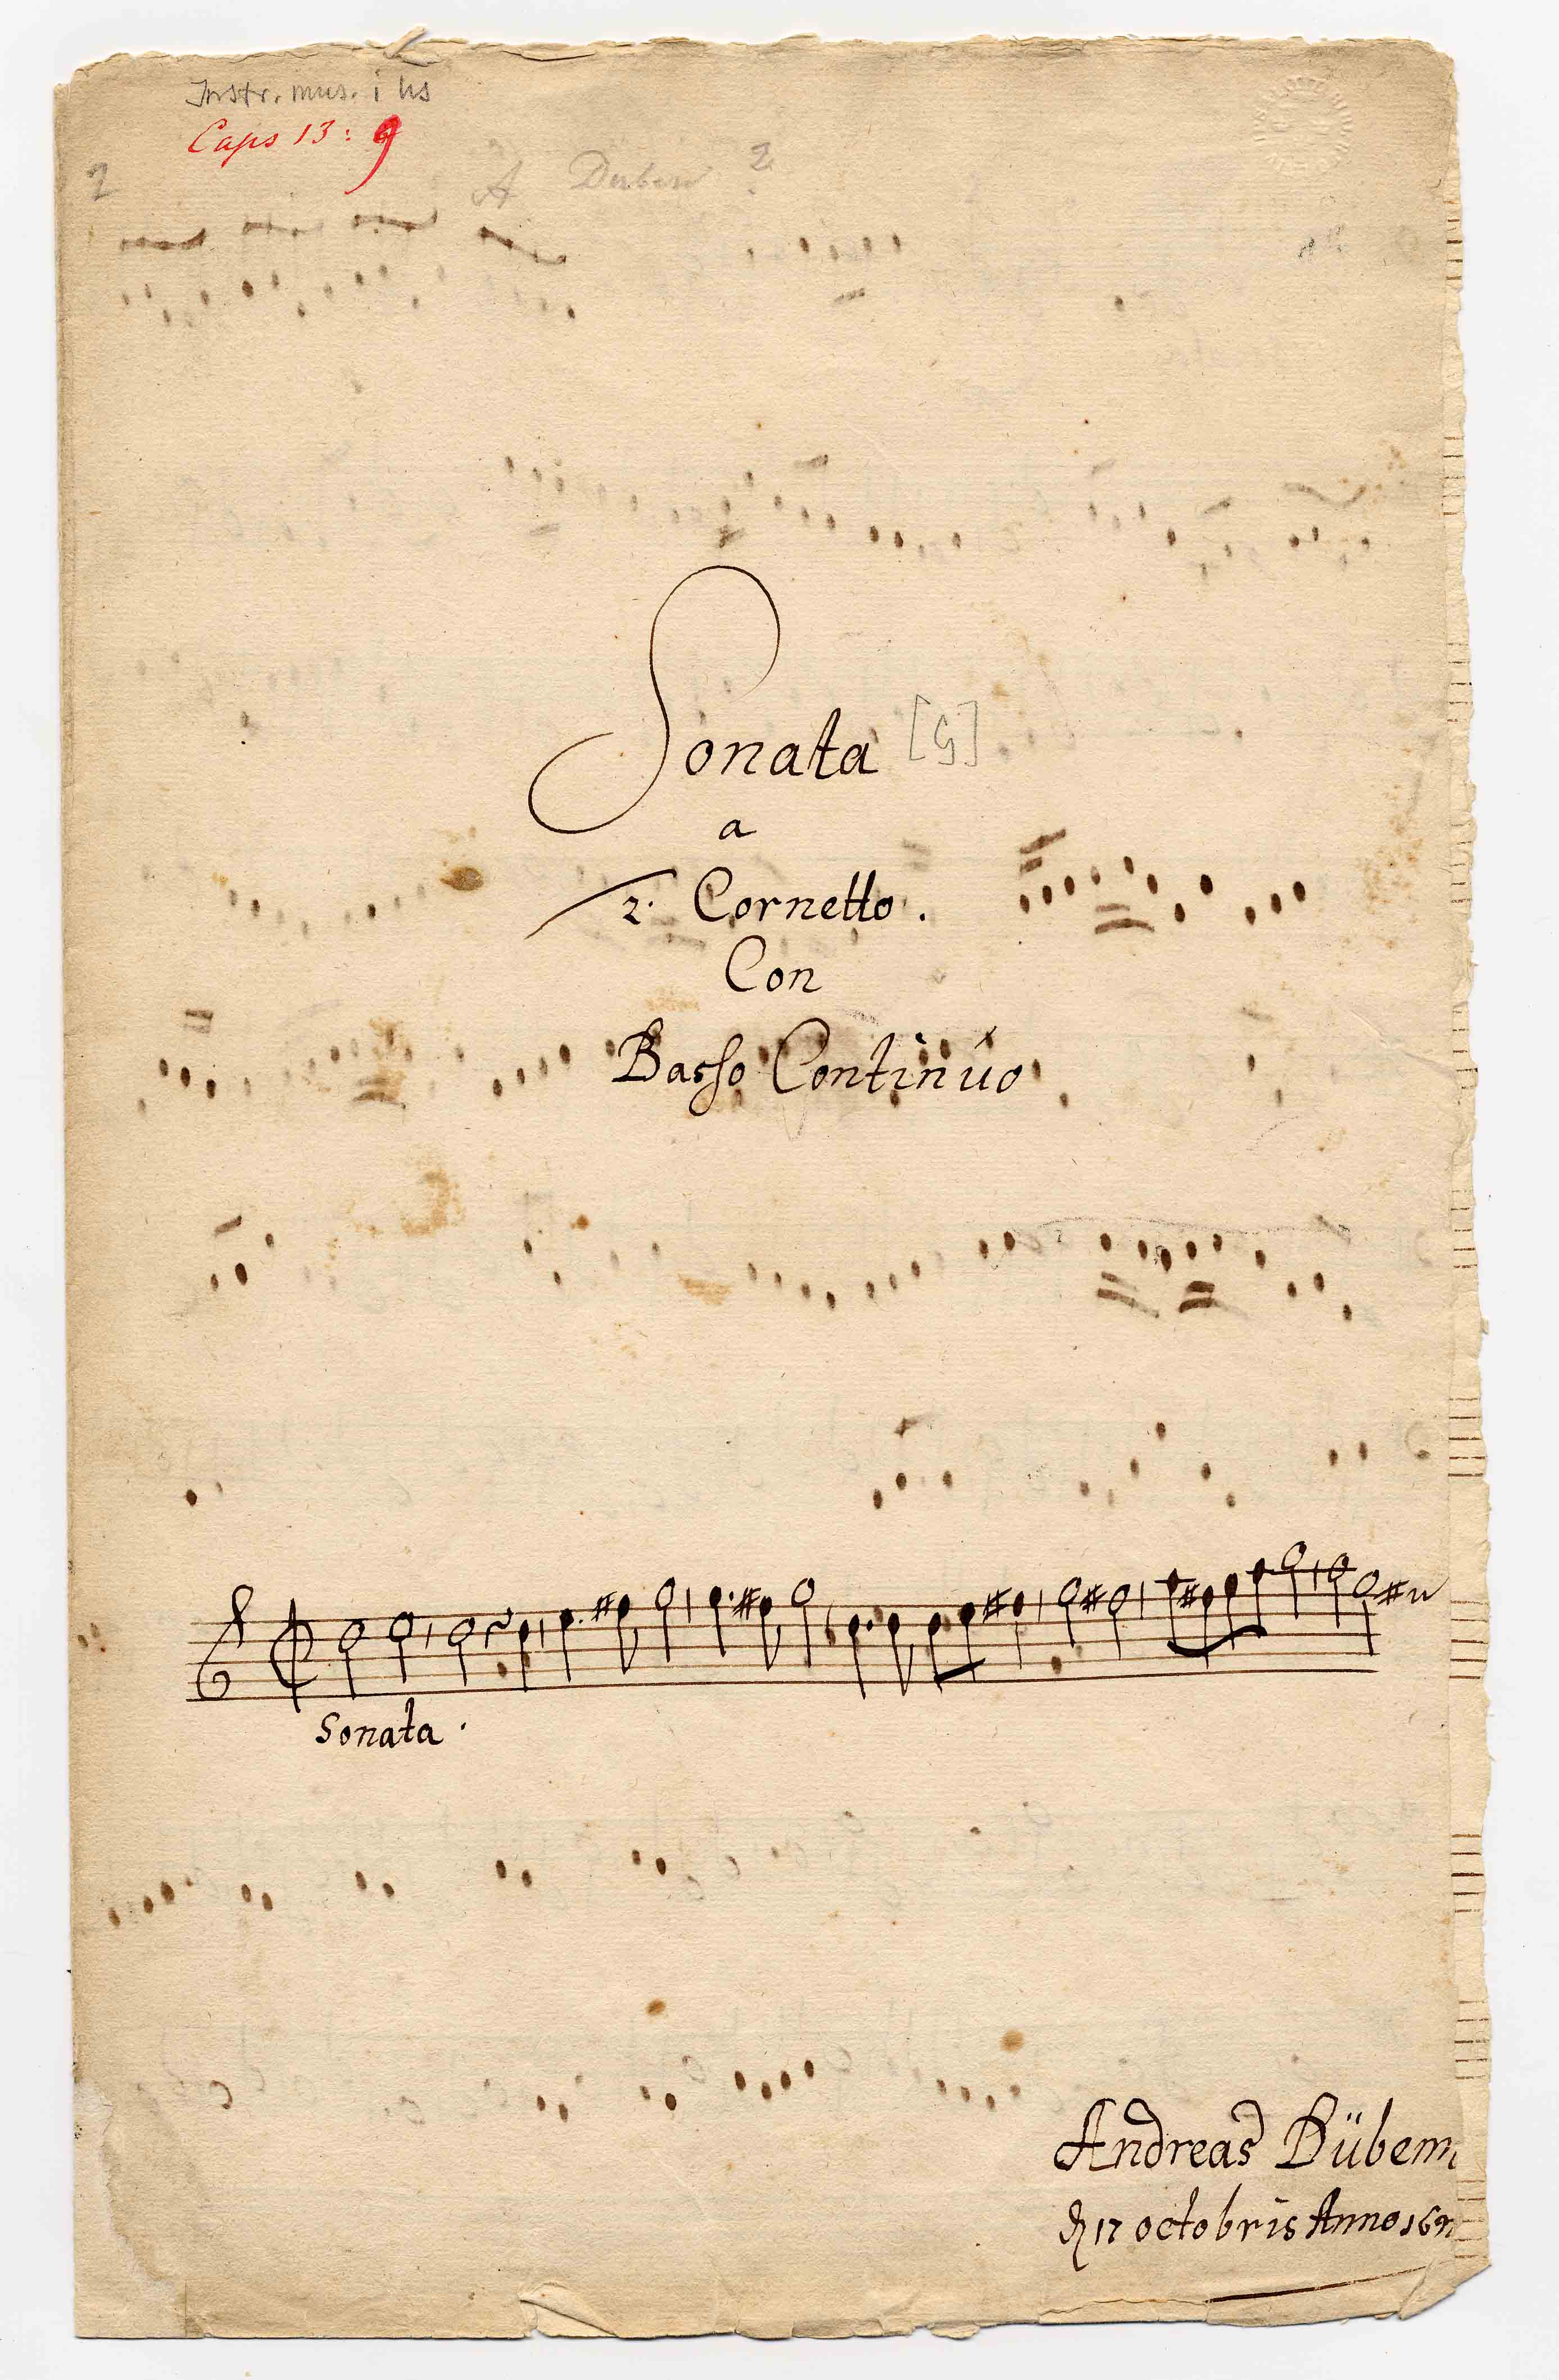 Instr. mus. i hs
Caps 13: 9
2 A Duben 2
Sonata [G]
a
2. Cornetto.
Con
Basso Continúo
Sonata.
Andreas Düben
17 octobris Anno 169